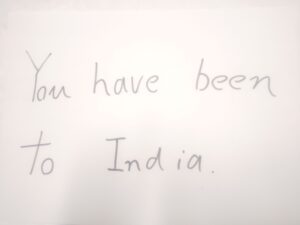 You have been
to India.